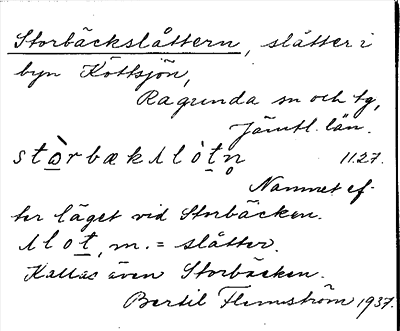 Storbäckslåttern, slåtter i
byn Köttsjön,
Ragunda sn och tg,
Jämtl. län.
stòrbækslòtn̥ 11.27.
Namnet ef-
ter läget vid Storbäcken.
slot, m. = slåtter.
Kallas även Storbäcken.
Bertil Flemström 1937.